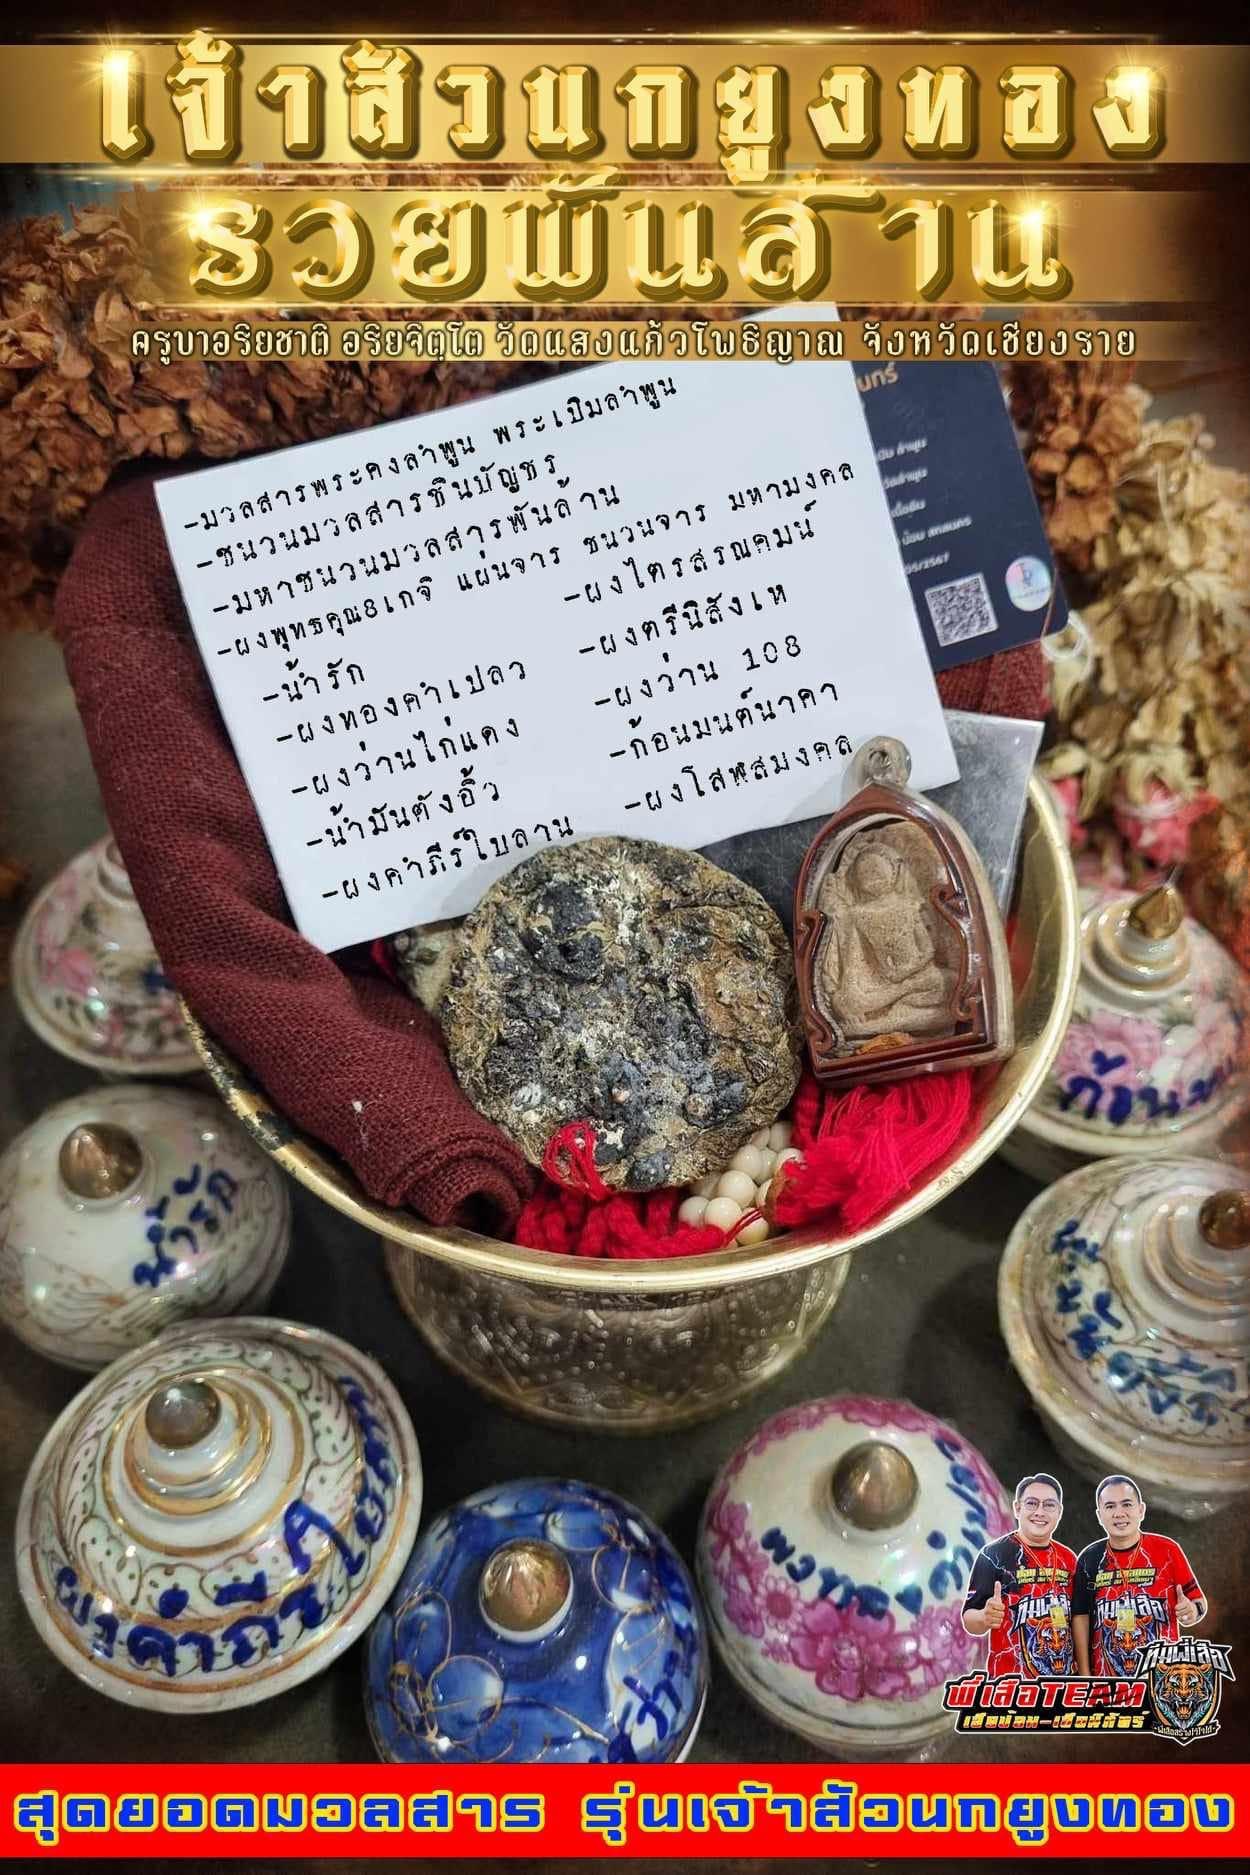 เจ้าสัวนกยูงทอง
รวยพันล้าน
ครูบาอริยชาติ อริยจิตฺโต วัดแสงแก้วโพธิญาณ จังหวัดเชียงราย
-มวลสารพระคงลำพูน พระเปิมลำพูน
-ชนวนมวลสารชินบัญชร
-มหาชนวนมวลสารพันล้าน
-ผงพุทธคุณ8เกจิ แผ่นจาร ชนวนจาร มหามงคล
-น้ำรัก
-ผงไตรสรณคมน์
-ผงทองคำเปลว
-ผงตรีนิสิงเห
-ผงว่านไก่แดง
-ผงว่าน 108
-น้ำมันตังอิ้ว
-ก้อนมนต์นาคา
-ผงคำภีร์ใบลาน
-ผงโสฬสมงคล
05/2567
น้ำรัก
ผงคำภีร์ใบลาน
ผงทองคำเปลว
ทีมพี่เสือ
พี่เสือTEAM
สุดยอดมวลสาร รุ่นเจ้าสัวนกยูงทอง